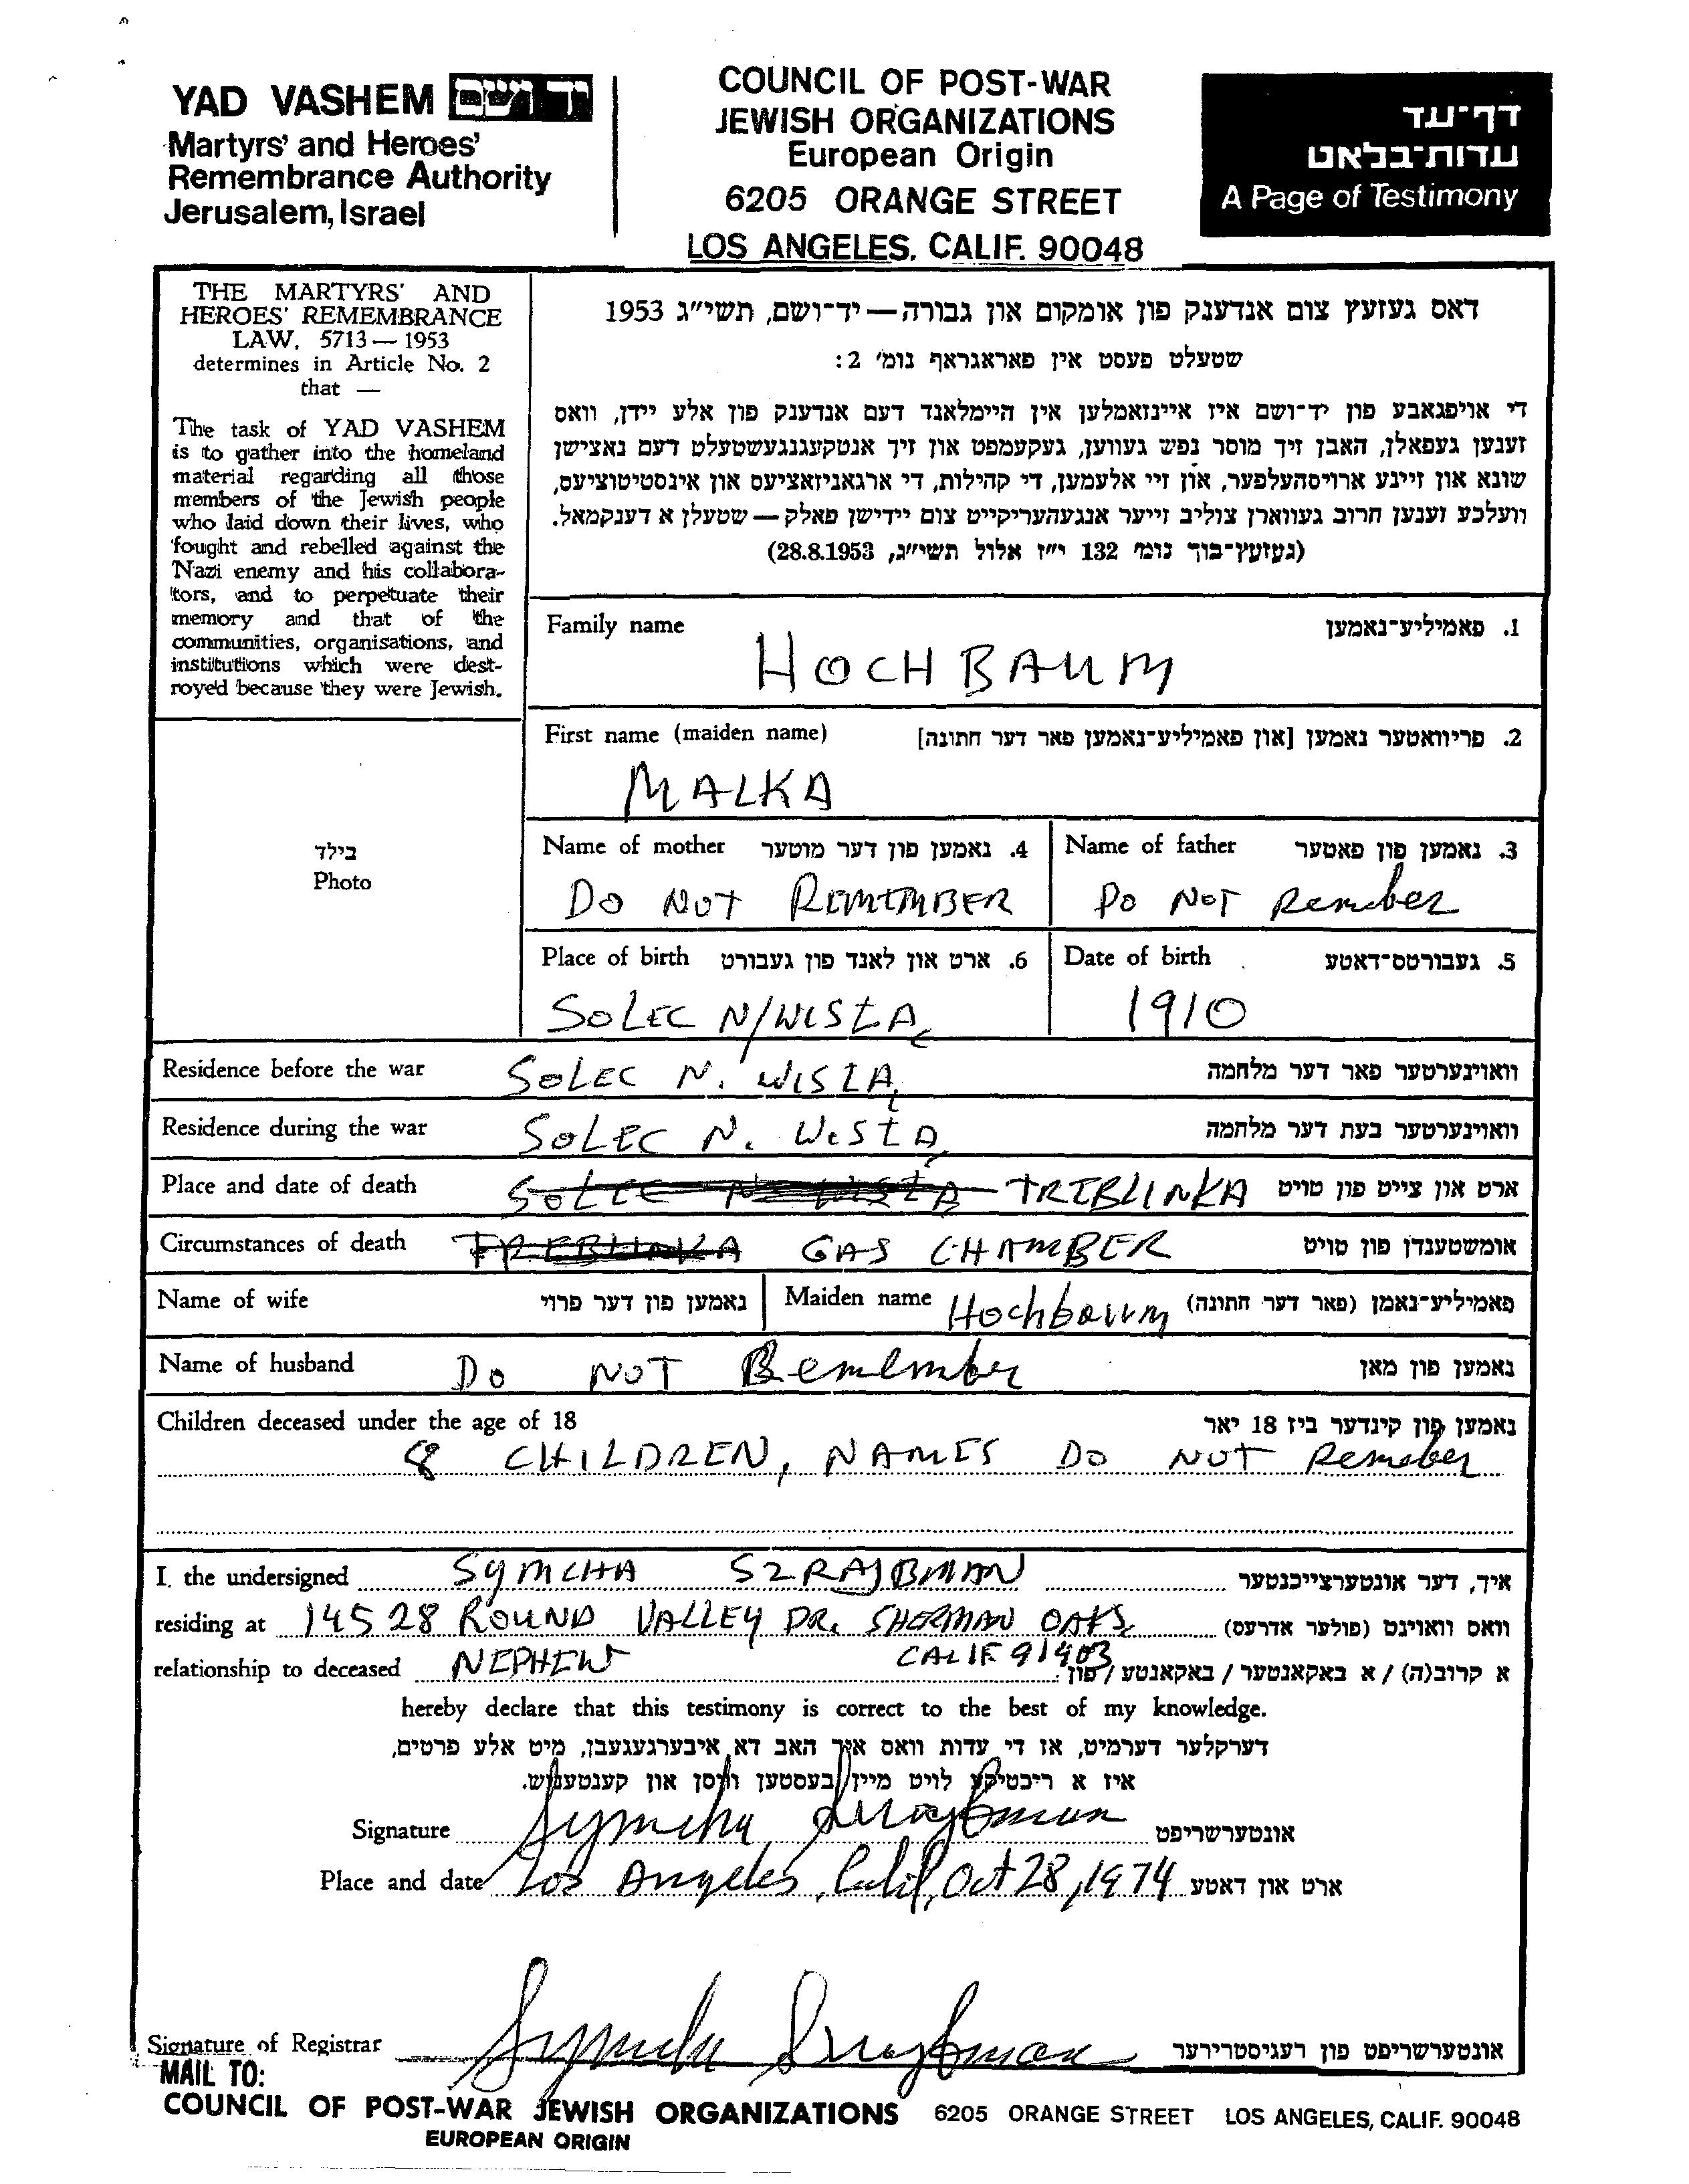 YAD VASHEM יד ושם
Martyrs' and Heroes'
Remembrance Authority
Jerusalem, Israel
COUNCIL OF POST-WAR
JEWISH ORGANIZATIONS
European Origin
6205 ORANGE STREET
LOS ANGELES, CALIF. 90048
דף-עד
עדות-בלאט
A Page of Testimony
THE MARTYRS' AND
HEROES' REMEMBRANCE
LAW, 5713 — 1953
determines in Article No. 2
that —
The task of YAD VASHEM
is to gather into the homeland
material regarding all those
members of the Jewish people
who laid down their lives, who
fought and rebelled against the
Nazi enemy and his collabora-
tors, and to perpetuate their
memory and that of the
communities, organisations, and
institutions which were dest-
royed because they were Jewish.
דאס געזעץ צום אנדענק פון אומקום און גבורה — יד-ושם, תשי"ג 1953
שטעלט פעסט אין פאראגראף נומ' 2:
די אויפגאבע פון יד-ושם איז איינזאמלען אין היימלאנד דעם אנדענק פון אלע יידן, וואס
זענען געפאלן, האבן זיך מוסר נפש געווען, געקעמפט און זיך אנטקעגנגעשטעלט דעם נאצישן
שונא און זיינע ארויסהעלפער, און זיי אלעמען, די קהילות, די ארגאניזאציעס און אינסטיטוציעס,
וועלכע זענען חרוב געווארן צוליב זייער אנגעהעריקייט צום יידישן פאלק — שטעלן א דענקמאל.
(געזעץ-בוך נומ' 132 י"ז אלול תשי"ג, 28.8.1953)
Family name 1. פאמיליע-נאמען
HOCHBAUM
First name (maiden name) 2. פריוואטער נאמען [און פאמיליע-נאמען פאר דער חתונה]
MALKA
בילד
Photo
Name of mother 4. נאמען פון דער מוטער Name of father 3. נאמען פון פאטער
DO NOT REMEMBER DO NOT Remeber
Place of birth 6. ארט און לאנד פון געבורט Date of birth 5. געבורטס-דאטע
SOLEC N/WISŁĄ 1910
Residence before the war SOLEC N. WISŁĄ וואוינערטער פאר דער מלחמה
Residence during the war SOLEC N. WISŁĄ וואוינערטער בעת דער מלחמה
Place and date of death SOLEC N WISŁA TREBLINKA ארט און צייט פון טויט
Circumstances of death TREBLINKA GAS CHAMBER אומשטענדן פון טויט
Name of wife נאמען פון דער פרוי Maiden name Hochbaum פאמיליע-נאמן (פאר דער חתונה)
Name of husband DO NOT Rememeber נאמען פון מאן
Children deceased under the age of 18 נאמען פון קינדער ביז 18 יאר
8 CHILDREN, NAMES DO NOT Remeber
I, the undersigned SYMCHA SZRAJBMAN איך, דער אונטערצייכנטער
residing at 14528 ROUND VALLEY DR. SHERMAN OAKS, וואס וואוינט (פולער אדרעס)
CALIF 91403
relationship to deceased NEPHEW א קרוב(ה) / א באקאנטער / באקאנטע / פון
hereby declare that this testimony is correct to the best of my knowledge.
דערקלער דערמיט, אז די עדות וואס איך האב דא איבערגעגעבן, מיט אלע פרטים,
איז א ריכטיקע לויט מיין בעסטען וויסן און קענטעניש.
Signature Symcha Szrajbman אונטערשריפט
Place and date Los Angeles, Calif, Oct 28, 1974 ארט און דאטע
Signature of Registrar Symcha Szrajbman אונטערשריפט פון רעגיסטרירער
MAIL TO:
COUNCIL OF POST-WAR JEWISH ORGANIZATIONS 6205 ORANGE STREET LOS ANGELES, CALIF. 90048
EUROPEAN ORIGIN